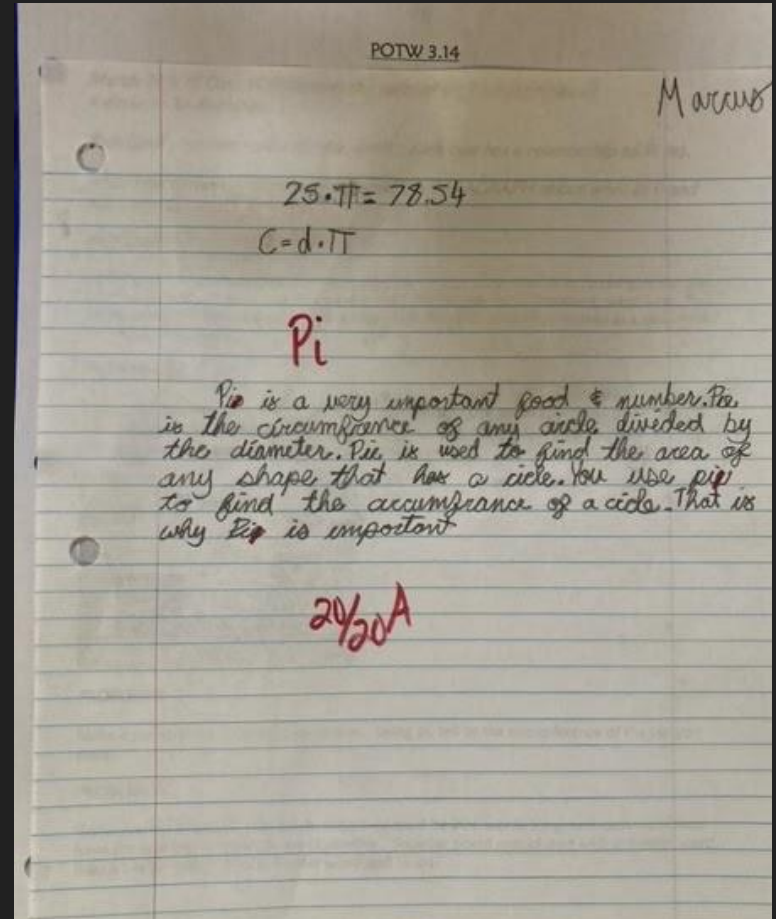 POTW 3.14
Marcus
25.π= 78.54
C=d.π
Pi
Pie is a very important food & number. Pie
is the circumfrence of any circle divided by
the diameter. Pie is used to find the area of
any shape that has a cicle. You use pie
to find the circumfrance of a cicle. That is
why Pie is important
20/20 A